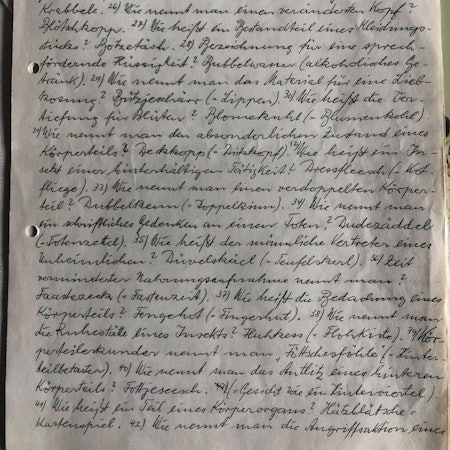 Krabbele. 26) Wie nennt man einen veränderten Kopf?
Blötschkopp. 27) Wie heißt ein Bestandteil eines Kleidungs-
stücks? Botzetäsch. 28) Bezeichnung für eine sprech-
fördernde Flüssigkeit? Bubbelwasser (alkoholisches Ge-
tränk). 29) Wie nennt man das Material für eine Lieb-
kosung? Bützjeschärr (= Lippen). 30) Wie heißt die Ver-
tiefung für Blüten? Blomekuhl (= Blumenkohl).
31) Wie nennt man den absonderlichen Zustand eines
Körperteils? Deckkopp (= Dickkopf). 32) Wie heißt ein In-
sekt einer hinterhältigen Tätigkeit? Dressfleech (= Kot
fliege). 33) Wie nennt man einen verdoppelten Körper-
teil? Dubbelkenn (= Doppelkinn). 34) Wie nennt man
ein schriftliches Gedenken an einen Toten? Dudezäddel
(= Totenzettel). 35) Wie heißt der männliche Vertreter eines
Unheimlichen? Düvelskääl (= Teufelskerl). 36) Zeit
verminderter Nahrungsaufnahme nennt man?
Faastezeck (= Fastenzeit). 37) Wie heißt die Bedachung eines
Körperteils? Fengehot (= Fingerhut). 38) Wie nennt man
die Ruhestätte eines Insekts? Fluhkess (= Flohkiste). 39) Kör-
perteilerkunder nennt man, Föttchesföhle (= Hinter-
teilbetaster). 40) Wie nennt man das Antlitz eines hinteren
Körperteils? Fottjeseech. (= Gesicht wie ein Hinterviertel).
41) Wie heißt ein Teil eines Körperorgans? Hätzblättche =
Kartenspiel. 42) Wie nennt man die Angriffsaktion eines